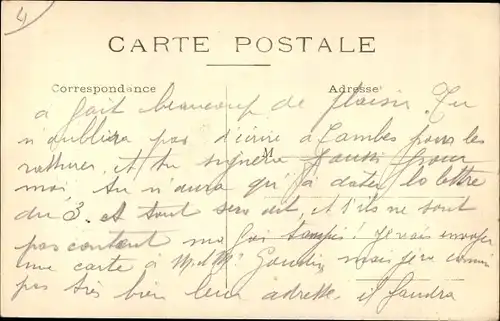 4
CARTE POSTALE
Correspondance
Adresse
a fait beaucoup de plaisir. Tu
n'oubliera pas d'écrire à pour les
et tu signera pour
M
moi tu n'aura qu'à dater la lettre
du 3. et tout sera dit, et s'ils ne sont
pas content ma foi tempis! Je vais envoyer
une carte à M. et Me mais je connais
pas très bien leur adresse. il faudra